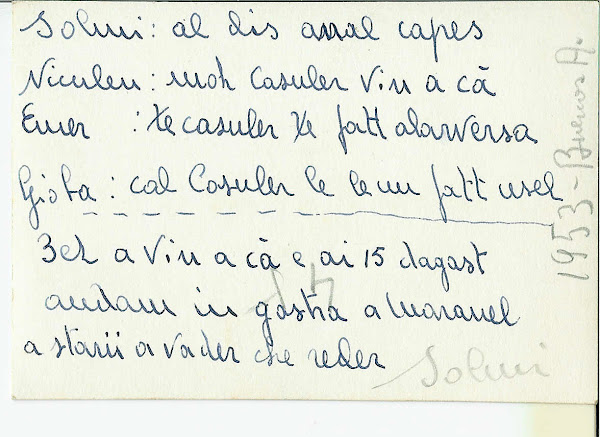 Solmi: al dis anal capes
Niculen: moh Casuler Vin a cā
Emer : Xe casuler Xe fatt alarversa
Giota: cal Casuler le lemm fatt usel
3ch a Vin a cā e ai 15 dagast
andam in gostra a Maranel
a starii a vader che reder
Solmi
1953-Buenos A.